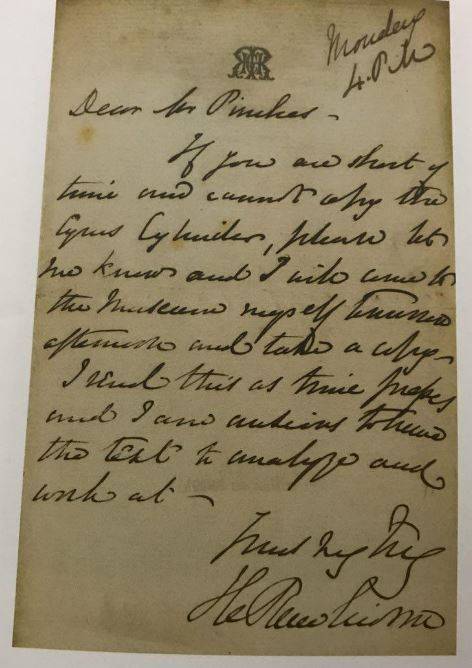 Monday
4. P.M
Dear Mr Pinches -
If you are short of
time and cannot copy the
Cyrus Cylinder, please let
me know and I will come to
the Museum myself tomorrow
afternoon and take a copy -
I send this as time presses
and I am anxious to have
the text to analyze and
work at -
Yours very truly
H C Rawlinson